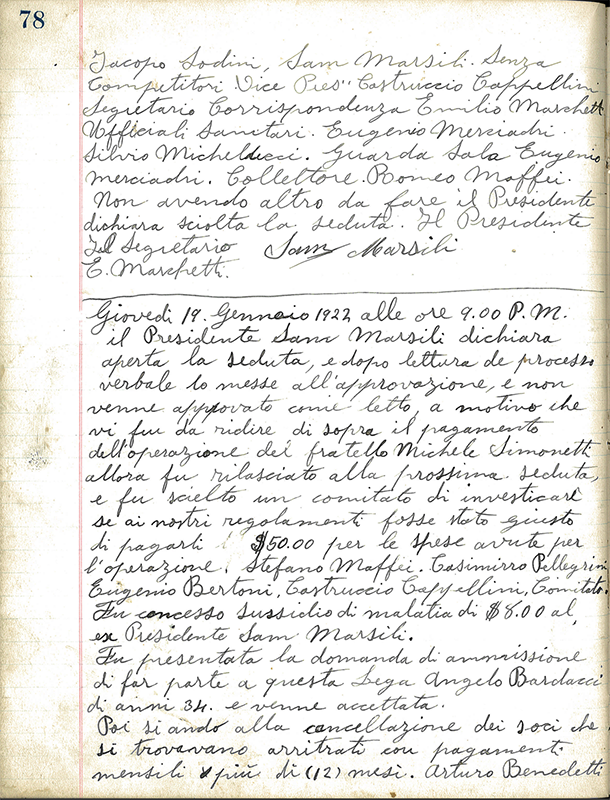 78
Jacopo Sodini, Sam Marsili. Senza
Competitori. Vice Pres" Castruccio Cappellini
Segretario Corrispondenza Emilio Marchett
Ufficiali Sanitari. Eugenio Merciadri.
Silvio Michelucci. Guarda Sala Eugenio
Merciadri. Collettore. Romeo Maffei.
Non avendo altro da fare il Presidente
dichiara sciolta la seduta. Il Presidente
Il Segretario Sam Marsili
E. Marchetti.
Giovedi 19. Gennaio 1922 alle ore 9.00 P.M.
il Presidente Sam Marsili dichiara
aperta la seduta, e dopo lettura de processo
verbale lo messe all'approvazione, e non
venne approvato come letto, a motivo che
vi fu da ridire di sopra il pagamento
dell'operazione del fratello Michele Simonetti
allora fu rilasciato alla prossima seduta,
e fu scielto un comitato di investicare
se ai nostri regolamenti fosse stato giusto
di pagarli $50.00 per le spese avute per
l'operazione. Stefano Maffei. Casimirro Pellegrini
Eugenio Bertoni, Castruccio Cappellini, Comitato.
Fu concesso sussidio di malatia di $8.00 al
ex Presidente Sam Marsili.
Fu presentata la domanda di ammissione
di far parte a questa Lega Angelo Barducci
di anni 34. e venne accettata.
Poi si ando alla cancellazione dei soci che
si trovavano arritrati con pagamenti
mensili più di (12) mesi. Arturo Benedetti